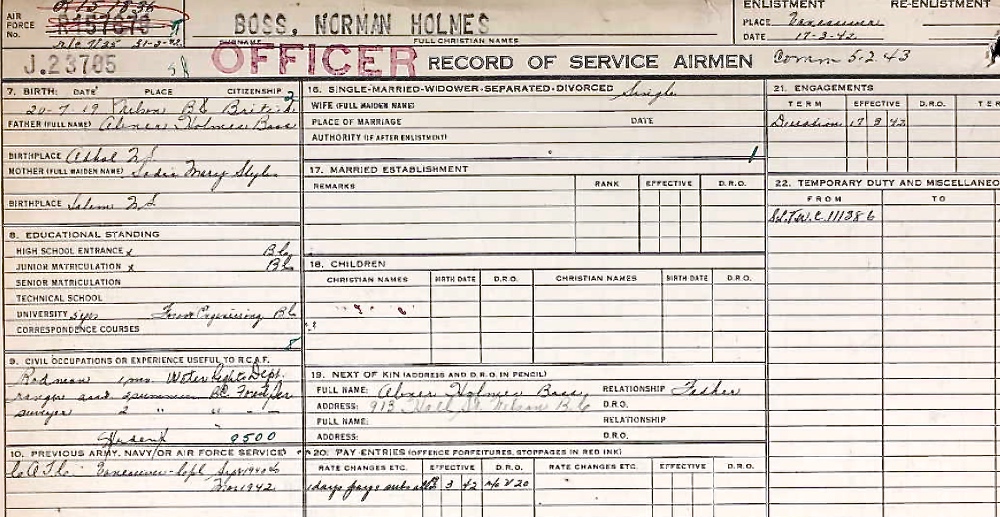 AIR FORCE No. R157073
BOSS, NORMAN HOLMES
SURNAME FULL CHRISTIAN NAMES
ENLISTMENT RE-ENLISTMENT
PLACE Vancouver
DATE 17-3-42
J.23705
OFFICER RECORD OF SERVICE AIRMEN
Comm 5.2.43
7. BIRTH: DATE PLACE CITIZENSHIP
20-7-19 Nelson BC British
FATHER (FULL NAME) Abner Holmes Boss
BIRTHPLACE N.S.
MOTHER (FULL MAIDEN NAME) Sadie Mary Styles
BIRTHPLACE Salem N.S.
8. EDUCATIONAL STANDING
HIGH SCHOOL ENTRANCE x BC
JUNIOR MATRICULATION x BC
SENIOR MATRICULATION
TECHNICAL SCHOOL
UNIVERSITY 5yrs Forest Engineering BC
CORRESPONDENCE COURSES
9. CIVIL OCCUPATIONS OR EXPERIENCE USEFUL TO R.C.A.F.
Rodman 1 mo. Water Rights Dept.
ranger asst. BC
surveyor 2 " " - -
Student 9500
10. PREVIOUS ARMY, NAVY/OR AIR FORCE SERVICE
C.O.T.C. Vancouver - Cpl Sept 1940 to
Mar 1942
16. SINGLE-MARRIED-WIDOWER-SEPARATED-DIVORCED Single
WIFE (FULL MAIDEN NAME)
PLACE OF MARRIAGE DATE
AUTHORITY (IF AFTER ENLISTMENT)
17. MARRIED ESTABLISHMENT
REMARKS RANK EFFECTIVE D.R.O.
18. CHILDREN
CHRISTIAN NAMES BIRTH DATE D.R.O. CHRISTIAN NAMES BIRTH DATE D.R.O.
19. NEXT OF KIN (ADDRESS AND D.R.O. IN PENCIL)
FULL NAME: Abner Holmes Boss RELATIONSHIP Father
ADDRESS: 913 Hall St. Nelson B.C. D.R.O.
FULL NAME: RELATIONSHIP
ADDRESS: D.R.O.
20. PAY ENTRIES (OFFENCE FORFEITURES, STOPPAGES IN RED INK)
RATE CHANGES ETC. EFFECTIVE D.R.O. RATE CHANGES ETC. EFFECTIVE D.R.O.
1 days pay & subs 3 42
21. ENGAGEMENTS
TERM EFFECTIVE D.R.O. TER
Duration 17 3 42
22. TEMPORARY DUTY AND MISCELLANEO
FROM TO
111386